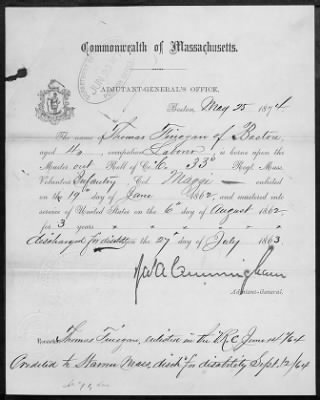 Commonwealth of Massachusetts.
ADJUTANT-GENERAL'S OFFICE,
Boston, May 25 1874
The name Thomas Finegan of Boston
aged 40, occupation Laborer, is borne upon the
Muster out Roll of Co. K. 33d Regt. Mass.
Volunteer Infantry Col. Maggi enlisted
on the 19th day of June 1862, and mustered into
service of United States on the 6th day of August 1862
for 3 years
discharged for disability 27th day of July 1863.
Cunningham
Adjutant-General.
Remarks Thomas Finegan, enlisted in the V.R.C. June 14/64
Credited to Mass, disch for disability Sept. 12/64